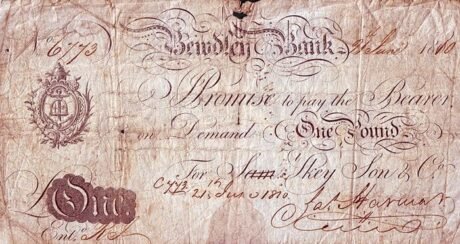 No. 6773 Bewdley Bank 1810
I Promise to pay the Bearer
on Demand One Pound.
For Sam Skey Son & Co
C 773
21st June 1810
£ One
Entd.